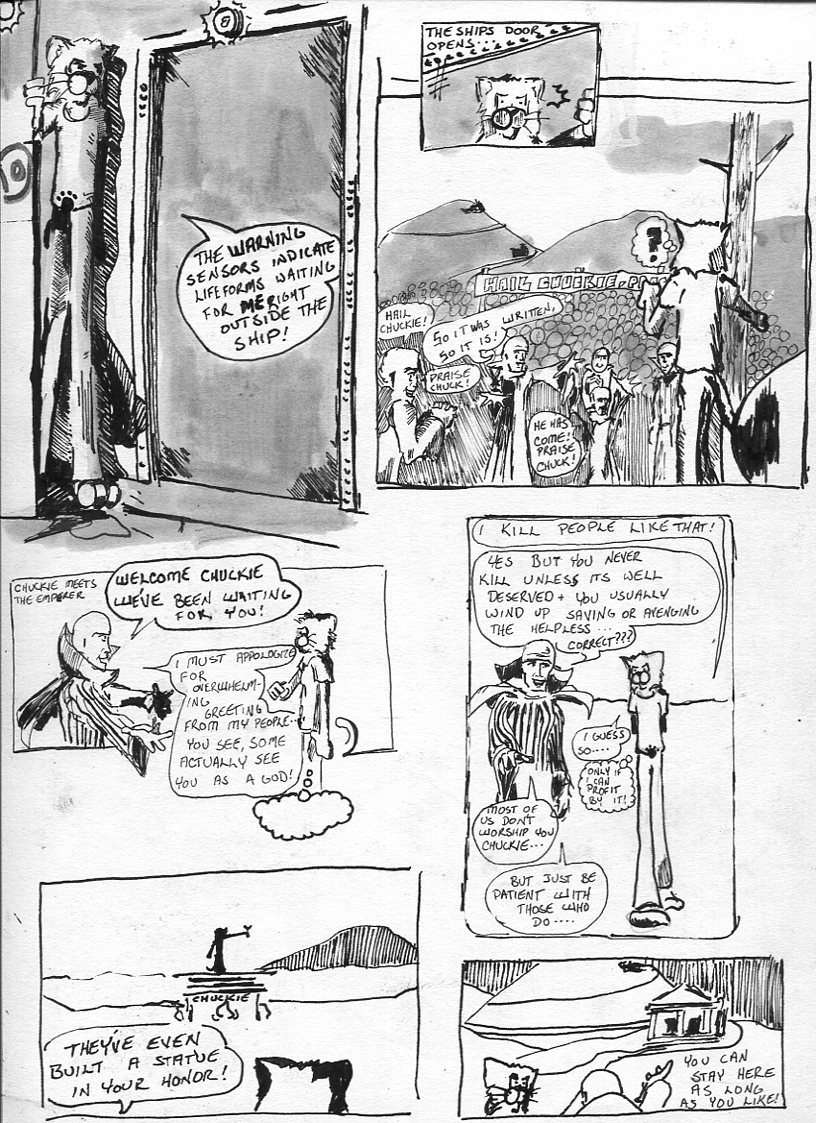 THE WARNING
SENSORS INDICATE
LIFEFORMS WAITING
FOR ME RIGHT
OUTSIDE THE
SHIP!
8
THE SHIPS DOOR
OPENS...
!
HAIL CHUCKIE,
HAIL
CHUCKIE!
SO IT WAS WRITTEN,
SO IT IS!
PRAISE
CHUCK!
HE HAS
COME!
PRAISE
CHUCK!
CHUCKIE MEETS
THE EMPERER
WELCOME CHUCKIE
WE'VE BEEN WAITING
FOR YOU!
I MUST APPOLOGIZE
FOR
OVERWHELM-
ING
GREETING
FROM MY PEOPLE...
YOU SEE, SOME
ACTUALLY SEE
YOU AS A GOD!
I KILL PEOPLE LIKE THAT!
YES BUT YOU NEVER
KILL UNLESS ITS WELL
DESERVED + YOU USUALLY
WIND UP SAVING OR AVENGING
THE HELPLESS...
CORRECT???
I GUESS
SO....
ONLY IF
I CAN
PROFIT
BY IT!
MOST OF
US DON'T
WORSHIP YOU
CHUCKIE...
BUT JUST BE
PATIENT WITH
THOSE WHO
DO....
CHUCKIE
THEY'VE EVEN
BUILT A STATUE
IN YOUR HONOR!
YOU CAN
STAY HERE
AS LONG
AS YOU LIKE!